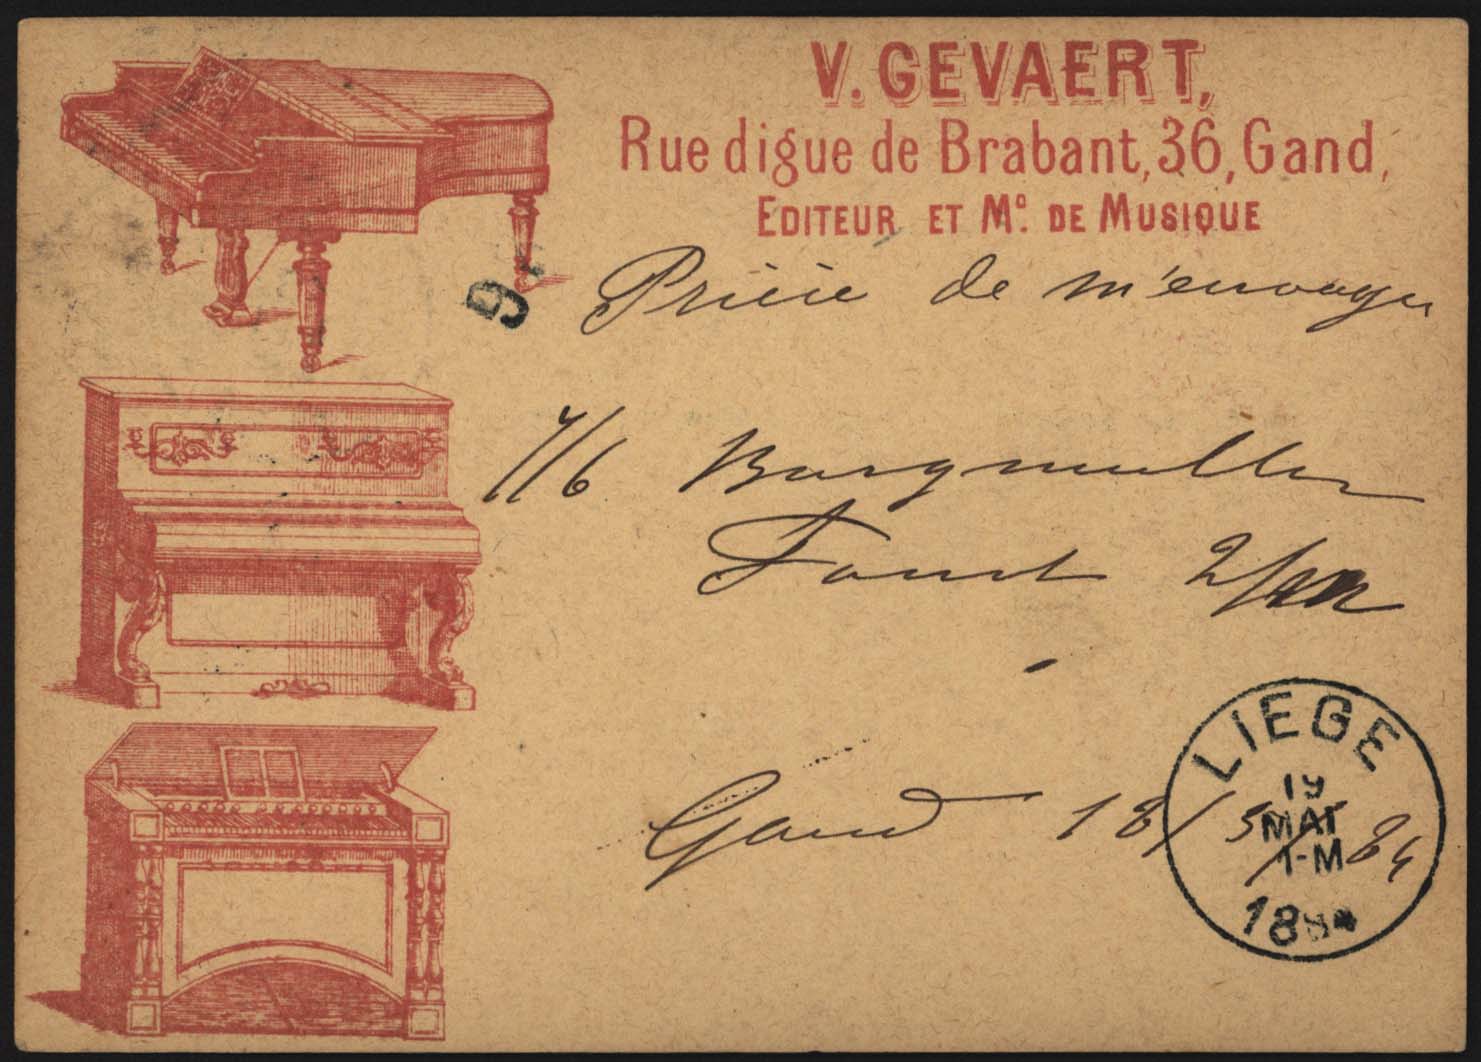 V. GEVAERT,
Rue digue de Brabant, 36, Gand,
EDITEUR ET Mᴰ. DE MUSIQUE
Prière de m'envoyer
1/6 Burgmuller
Faust 2/m
Gand 18/5/84
9
LIEGE
19
MAI
1-M
1884